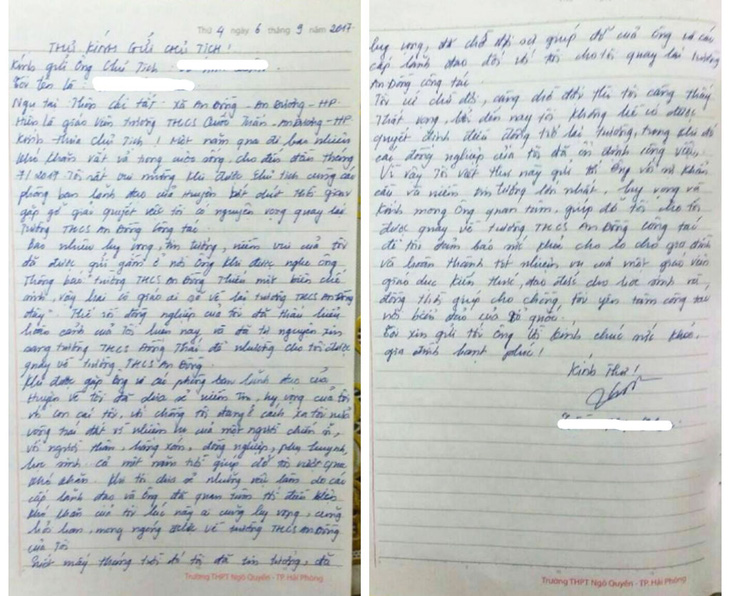 Thứ 4 ngày 6 tháng 9 năm 2017
THƯ KÍNH GỬI CHỦ TỊCH!
Kính gửi Ông Chủ Tịch
Tôi tên là
Ngụ tại Thôn Chí tất - Xã An Đồng - An Dương - HP
Hiện là giáo viên trường THCS Quốc Tuấn - An Dương - HP
Kính thưa Chủ Tịch! Một năm qua đi bao nhiêu
khó khăn vất vả trong cuộc sống, cho đến đầu tháng
7/2017 Tôi rất vui mừng khi được Chủ Tịch cùng các
phòng ban lãnh đạo của Huyện bớt chút thời gian
gặp gỡ giải quyết với tôi có nguyện vọng quay lại
trường THCS An Đồng công tác.
Bao nhiêu hy vọng, tin tưởng, niềm vui của tôi
đã được gửi gắm ở nơi Ông khi được nghe ông
Thông báo "trường THCS An Đồng thiếu một biên chế
sinh, vậy cô giáo ai sẽ về lại trường THCS An Đồng
đây". Thế rồi đồng nghiệp của tôi đã thấu hiểu
hoàn cảnh của tôi lúc này và đã tự nguyện xin
sang trường THCS Đồng Thái để nhường cho tôi được
quay về trường THCS An Đồng.
Khi được gặp ông và các phòng ban lãnh đạo của
Huyện về tôi đã chia sẻ niềm tin, hy vọng của tôi
với con cái tôi, với chồng tôi đang ở cách xa tôi nửa
vòng trái đất vì nhiệm vụ của một người chiến sĩ,
với người thân, hàng xóm, đồng nghiệp, phụ huynh,
học sinh cả một năm trời giúp đỡ tôi vượt qua
khó khăn. Khi tôi chia sẻ những việc làm do các
cấp lãnh đạo và ông đã quan tâm tới
khó khăn của tôi lúc này ai cũng hy vọng, cũng
mong ngóng về trường THCS An Đồng
của tôi
Suốt mấy tháng trời đó tôi đã tin tưởng, đã
Trường THPT Ngô Quyền - TP. Hải Phòng
hy vọng, đã chờ đợi sự giúp đỡ của ông và các
cấp lãnh đạo đối với tôi cho tôi quay lại trường
An Đồng công tác.
Tôi cứ chờ đợi, càng chờ đợi thì tôi càng thấy
Thất vọng, bởi đến nay tôi không hề có được
quyết định điều động trở lại trường, trong khi đó
các đồng nghiệp của tôi đã ổn định công việc.
Vì vậy Tôi viết thư này gửi tới Ông với sự khẩn
cầu và niềm tin tưởng lớn nhất, hy vọng và
kính mong ông quan tâm, giúp đỡ tôi cho tôi
được quay về trường THCS An Đồng công tác
để tôi đảm bảo sức khỏe cho lo cho gia đình
và hoàn thành tốt nhiệm vụ của một giáo viên
giáo dục kiến thức, đạo đức cho học sinh và,
đồng thời giúp cho chồng tôi yên tâm công tác
nơi biển đảo của tổ quốc.
Tôi xin gửi tới ông lời kính chúc sức khỏe,
gia đình hạnh phúc!
Kính Thư!
Trường THPT Ngô Quyền - TP. Hải Phòng